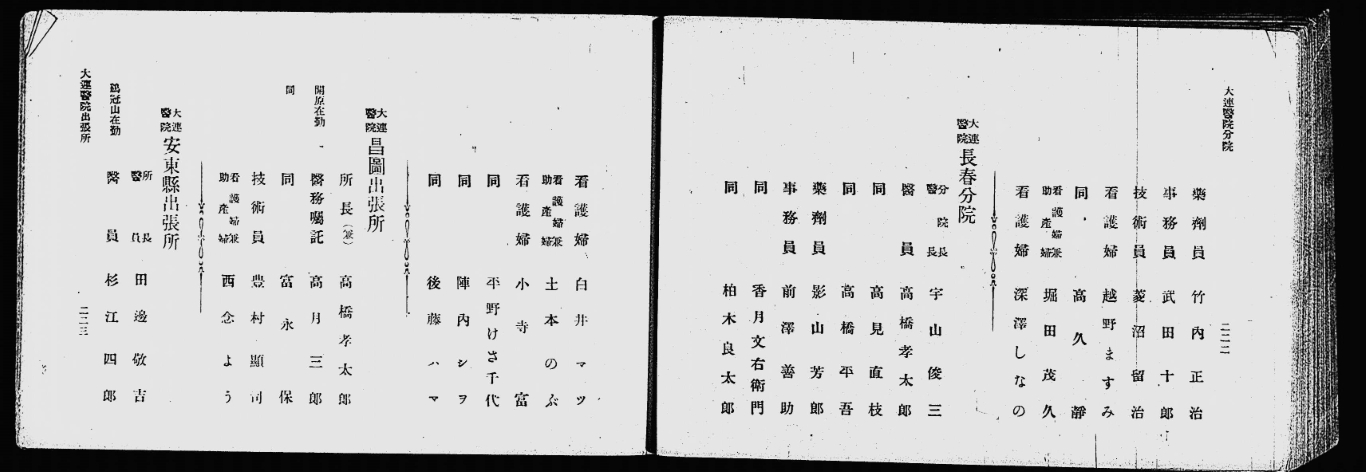 大連醫院分院
二二二
藥劑員 竹內正治
事務員 武田十郎
技術員 菱沼留治
看護婦 越野ますみ
同 高久靜
看護婦兼助產婦 堀田茂久
看護婦 深澤しなの
大連醫院 長春分院
分院長醫長 宇山俊三
醫員 高橋孝太郎
同 高見直枝
同 高橋平吾
藥劑員 影山芳郎
事務員 前澤善助
同 香月文右衛門
同 柏木良太郎
看護婦 白井マツ
看護婦兼助產婦 土本のぶ
看護婦 小寺富
同 平野けさ千代
同 陣內シヲ
同 後藤ハマ
大連醫院 昌圖出張所
所長(兼) 高橋孝太郎
開原在勤 醫務囑託 高月三郎
同 同 富永保
技術員 豊村顯司
看護婦兼助產婦 西念よう
大連醫院 安東縣出張所
所長醫員 田邊敬吉
鷄冠山在勤 醫員 杉江四郎
大連醫院出張所
二二三